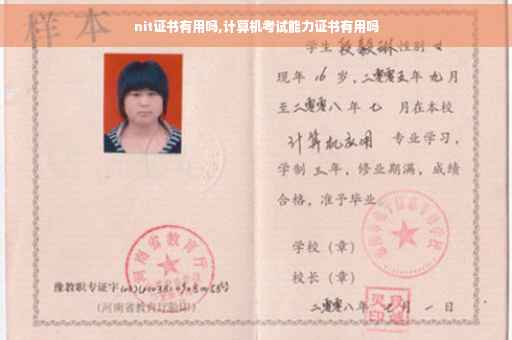 nit证书有用吗,计算机考试能力证书有用吗
样本
学生 段毅琳 性别 女
现年 16 岁，二零零五年九月
至二零零八年 七 月在本校
计算机应用 专业学习，
学制 三 年，修业期满，成绩
合格，准予毕业。
学校（章）
校长（章）
二零零八年 七 月 一 日
河南省教育厅
豫教职专证字
（河南省教育厅验印）